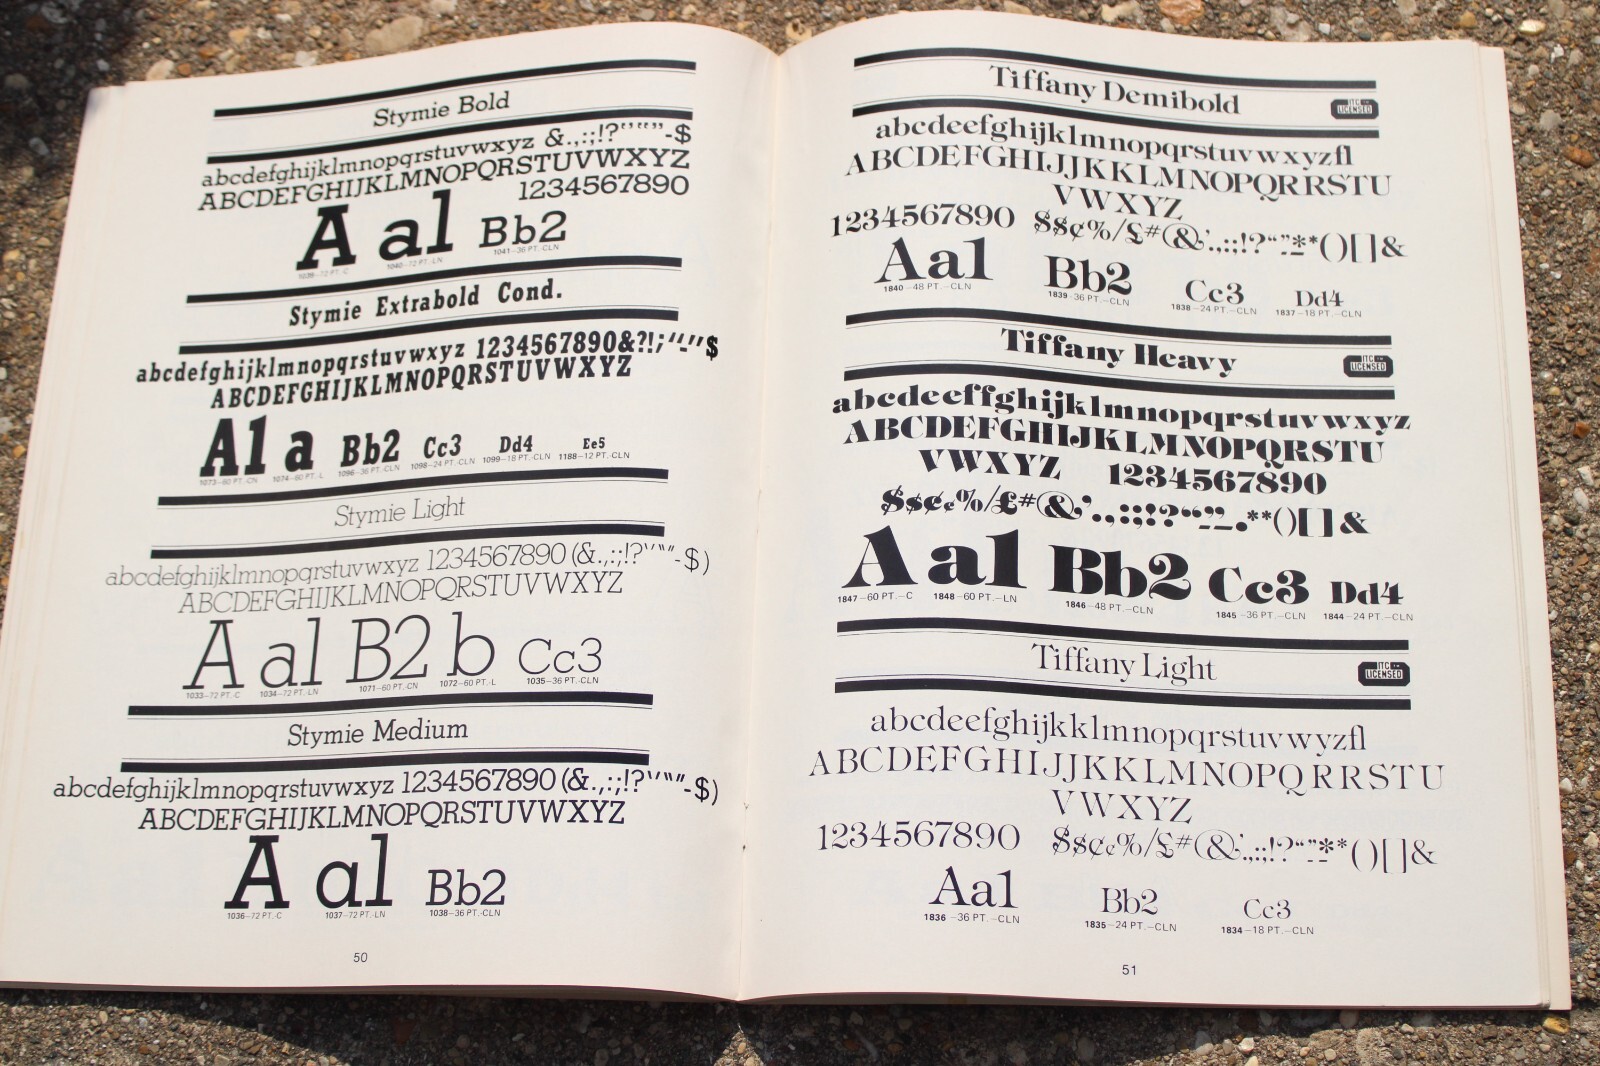 Stymie Bold
abcdefghijklmnopqrstuvwxyz &.,:;!?‘’“”-$
ABCDEFGHIJKLMNOPQRSTUVWXYZ
1234567890
A al Bb2
1039–72 PT.-C 1040–72 PT.-LN 1041–36 PT.-CLN
Stymie Extrabold Cond.
abcdefghijklmnopqrstuvwxyz 1234567890&?!;‘’“-”$
ABCDEFGHIJKLMNOPQRSTUVWXYZ
A1 a Bb2 Cc3 Dd4 Ee5
1073–60 PT.-CN 1074–60 PT.-L 1096–36 PT.-CLN 1098–24 PT.-CLN 1099–18 PT.-CLN 1188–12 PT.-CLN
Stymie Light
abcdefghijklmnopqrstuvwxyz 1234567890 (&.,:;!?‘’“”-$)
ABCDEFGHIJKLMNOPQRSTUVWXYZ
A al B2 b Cc3
1033–72 PT.-C 1034–72 PT.-LN 1071–60 PT.-CN 1072–60 PT.-L 1035–36 PT.-CLN
Stymie Medium
abcdefghijklmnopqrstuvwxyz 1234567890 (&.,:;!?‘’“”-$)
ABCDEFGHIJKLMNOPQRSTUVWXYZ
A al Bb2
1036–72 PT.-C 1037–72 PT.-LN 1038–36 PT.-CLN
50
Tiffany Demibold
ITC LICENSED
abcdeefghijklmnopqrstuvwxyzfl
ABCDEFGHIJJKKLMNOPQRRSTU
VWXYZ
1234567890 $$¢%/£#(&’.,:;!?“”-**()[]&
Aa1 Bb2 Cc3 Dd4
1840–48 PT.–CLN 1839–36 PT.–CLN 1838–24 PT.–CLN 1837–18 PT.–CLN
Tiffany Heavy
ITC LICENSED
abcdeeffghijklmnopqrstuvwxyz
ABCDEFGHIJKLMNOPQRSTU
VWXYZ 1234567890
$$¢¢%/£#(&’.,:;!?“”-.**()[]&
A a1 Bb2 Cc3 Dd4
1847–60 PT.–C 1848–60 PT.–LN 1846–48 PT.–CLN 1845–36 PT.–CLN 1844–24 PT.–CLN
Tiffany Light
ITC LICENSED
abcdeefghijkklmnopqrstuvwyzfl
ABCDEFGHIJJKKLMNOPQRRSTU
VWXYZ
1234567890 $$¢¢%/£#(&’.,:;!?“”-**()[]&
Aa1 Bb2 Cc3
1836–36 PT.–CLN 1835–24 PT.–CLN 1834–18 PT.–CLN
51